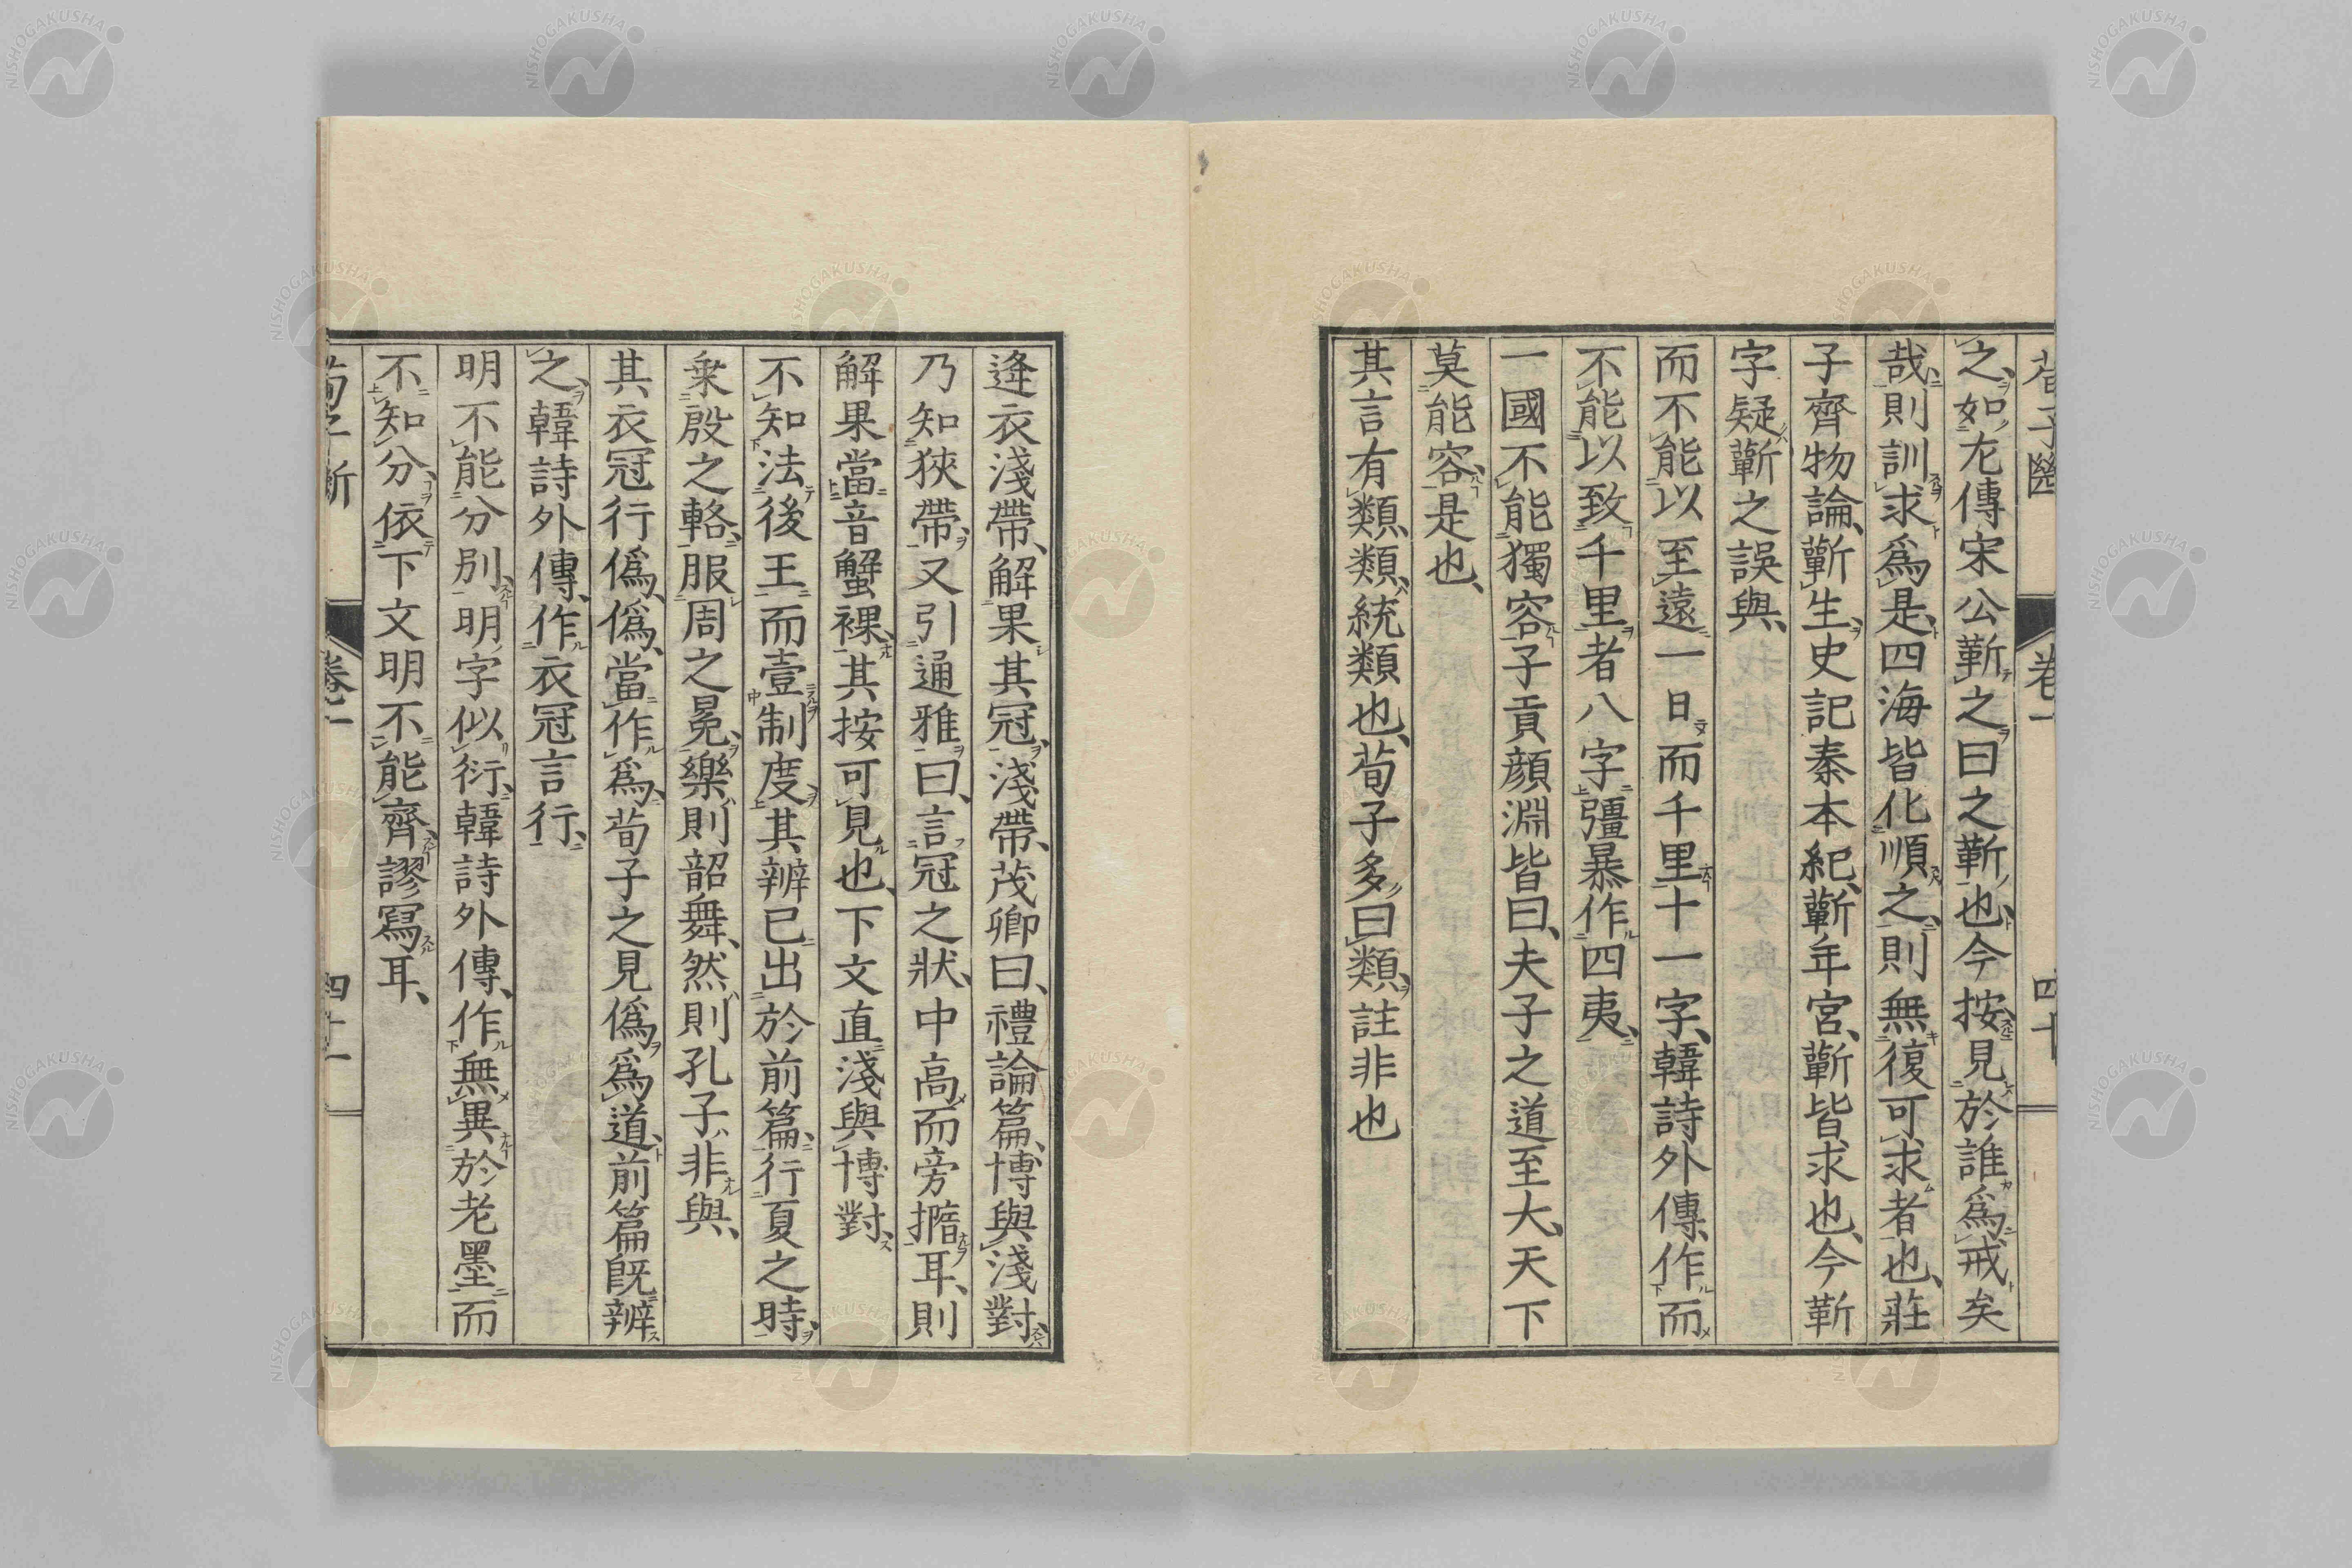 之、如尢傳宋公靳之曰之靳也、今按見於誰爲戒矣
哉、則訓求爲是四海皆化順之、則無復可求者也、莊
子齊物論、蘄生、史記秦本紀、蘄年宮、蘄皆求也、今靳
字疑蘄之誤與、
而不能以至遠一日而千里十一字、韓詩外傳、作而
不能以致千里者八字彊暴作四夷、
一國不能獨容子貢顏淵皆曰、夫子之道至大、天下
莫能容、是也、
其言有類、類、統類也、荀子多曰類、註非也
卷一
四十
逢衣淺帶、解果其冠、淺帶、茂卿曰、禮論篇、博與淺對、
乃知狹帶、又引通雅曰、言冠之狀、中高而旁㨯耳、則
解果當音蟹裸、其按可見也、下文直淺與博對、
不知法後王而壹制度、其辨已出於前篇、行夏之時、
乗殷之輅、服周之冕、樂則韶舞、然則孔子非與、
其衣冠行僞、僞、當作爲、荀子之見僞爲道、前篇既辨
之、韓詩外傳、作衣冠言行、
明不能分別、明字似衍、韓詩外傳、作無異於老墨而
不知分、依下文明不能齊、謬寫耳、
四十一
NISHOGAKUSHA